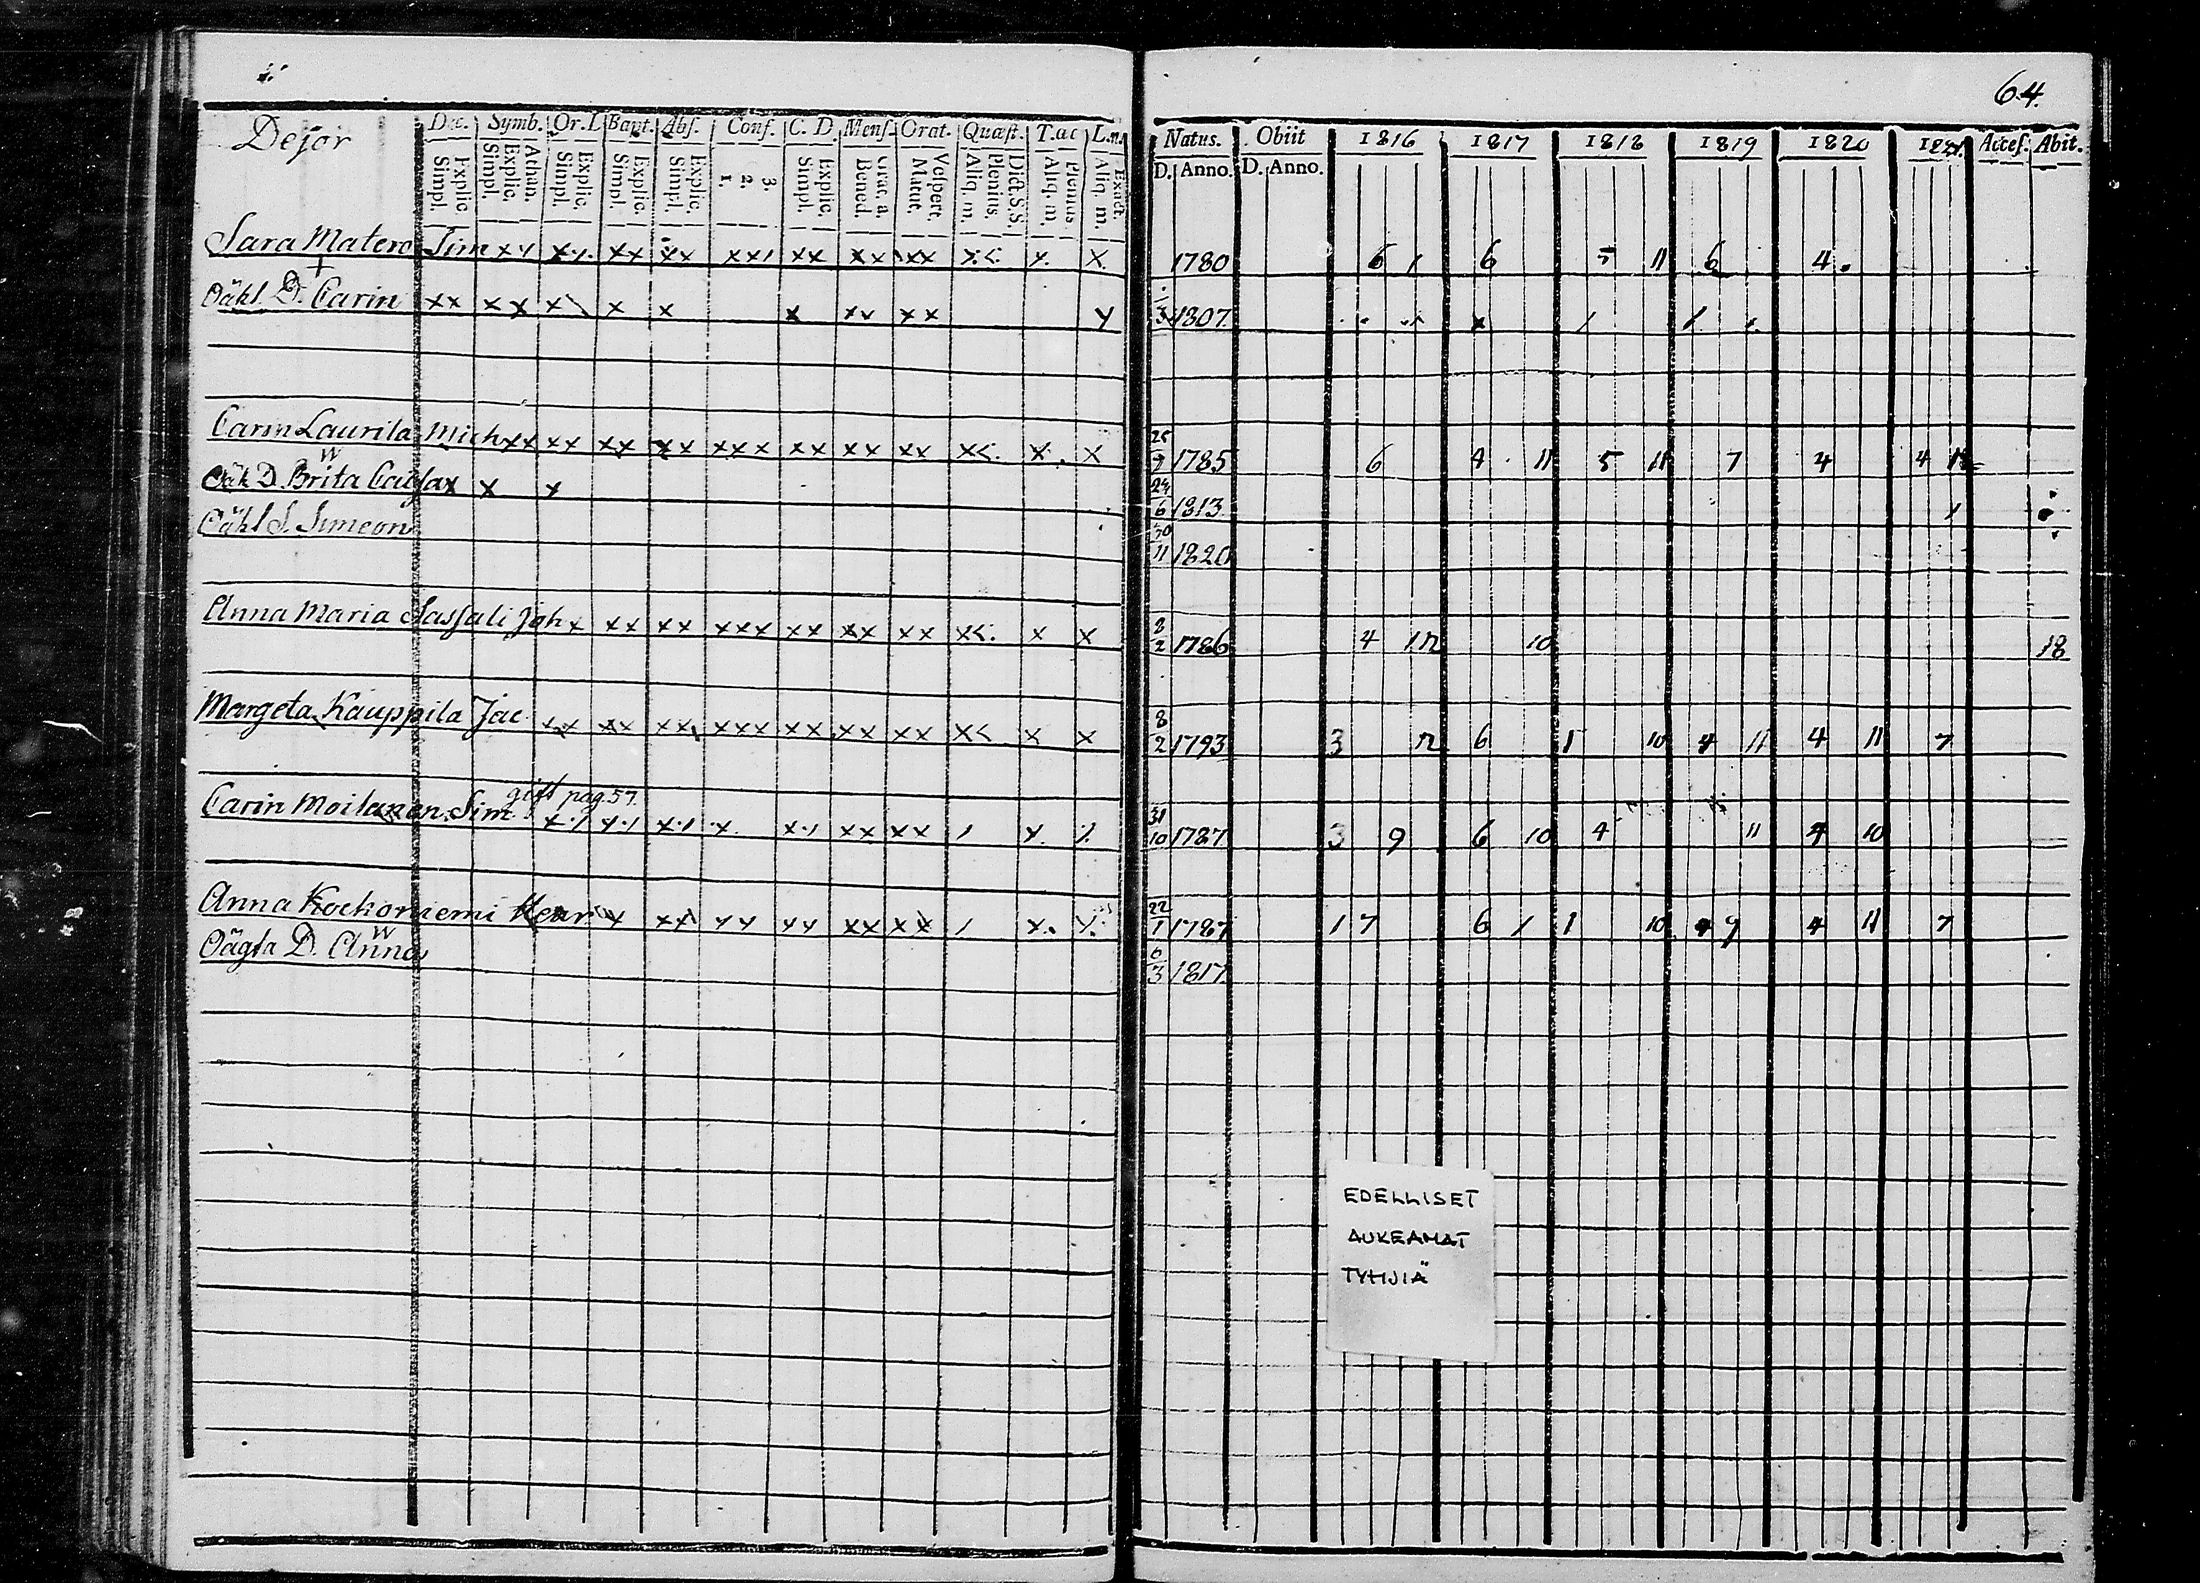 64.
Dejor Dec. Symb. Or. D. Bapt. Abs. Conf. C. D. Mens. Orat. Quæst. T. æc L. n. Natus. Obiit 1816 1817 1818 1819 1820 1821. Acces. Abit.
Explic. Simpl. Athan. Explic. Simpl. Explic. Simpl. Explic. Simpl. Explic. Simpl. 3. 2. 1. Explic. Simpl. Grac. a. Bened. Vespert. Matut. Dict. S. S. Plenius. Aliq. m. Plenius Aliq. m. Exact. Aliq. m. D. Anno. D. Anno.
Sara Matero Sim xx xx xx xx xxx xx xx xx x x 1780 6 1 6 5 11 6 4
Oäkt. D. Carin xx xx x x x x xx xx 3 1807
Carin Laurila Mich xx xx xx xx xxx xx xx xx x< x x 9 1785 6 4 11 5 11 7 4 4
Oäk D. Brita Cajsa x x x 24/6 1813
Oäkt S. Simeon 30/11 1820
Anna Maria Sassali Joh x xx xx xxx xx xx xx x< x x 8/2 1786 4 12 10 18
Margeta Kauppila Jac xx xx xx xxx xx xx xx x< x x 8/2 1793 3 12 6 10 4 11 4 11 7
gift pag. 57.
Carin Moilanen Sim 31/10 1787 3 9 6 10 4 11 4 10
Anna Kockoniemi Henr 22/1 1787 1 7 6 1 1 10 9 4 11 7
Oägta D. Anna 6/3 1817
EDELLISET
AUKEAMAT
TYHJIÄ